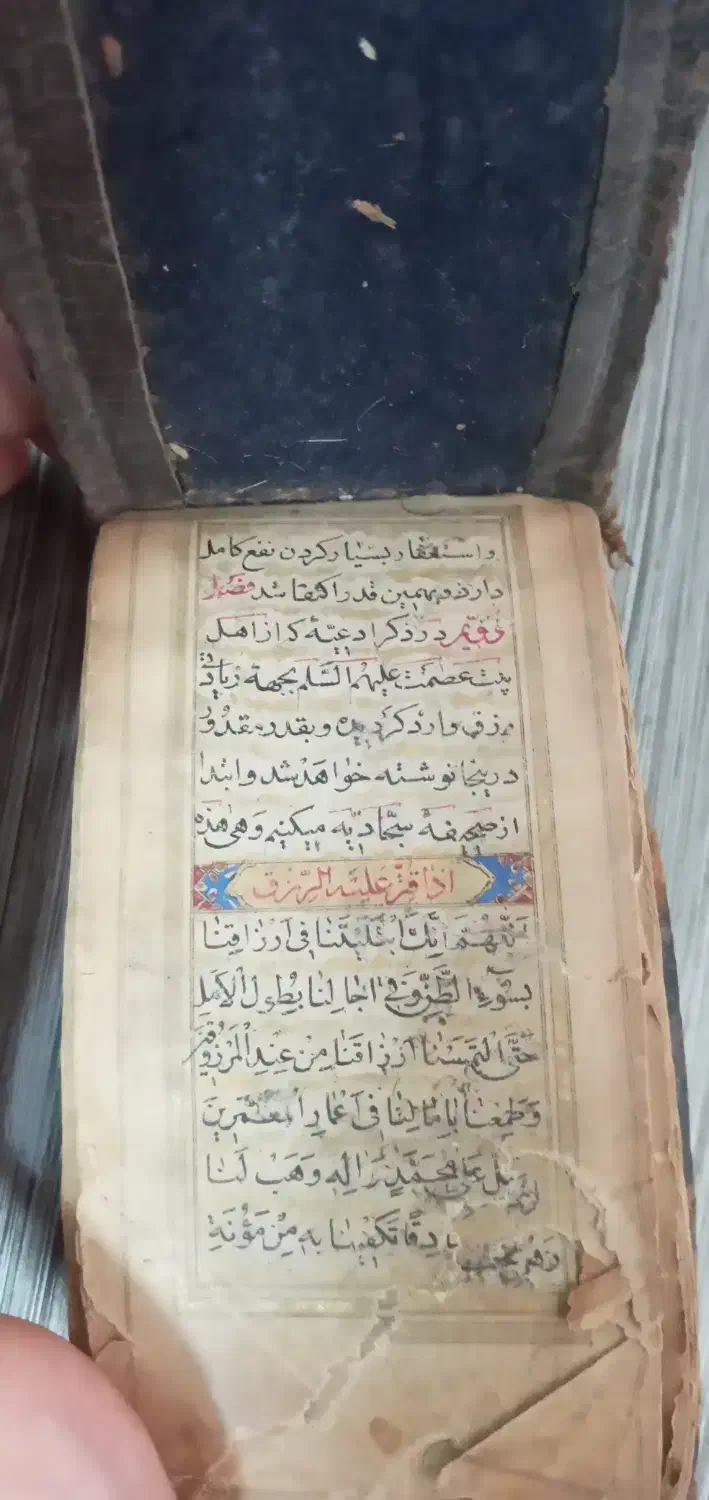 واستغفار بسیار کردن نفع کامل
دارد و بهمین قدر اکتفا شد فصل
دویّم در ذکر ادعیّهٔ که از اهل
بیت عصمت علیهم السّلم بجهة زیادتی
رزق وارد کردیده و بقدر مقدور
درینجا نوشته خواهد شد وابتدا
از صحیفهٔ سجّادیّه میکنیم وهی هذه
اذا قتّر علیه الرّزق
اَللّٰهُمَّ اِنَّكَ ابْتَلَيْتَنَا فِي اَرْزَاقِنَا
بِسُوءِ الظَّنِّ وَفِي اٰجَالِنَا بِطُولِ الْاَمَلِ
حَتَّى الْتَمَسْنَا اَرْزَاقَكَ مِنْ عِنْدِ الْمَرْزُوقِينَ
وَطَمِعْنَا بِاٰمَالِنَا فِي اَعْمَارِ الْمُعَمَّرِينَ
فَصَلِّ عَلٰى مُحَمَّدٍ وَاٰلِهِ وَهَبْ لَنَا
صَادِقًا تَكْفِينَا بِهِ مِنْ مَؤُنَةِ